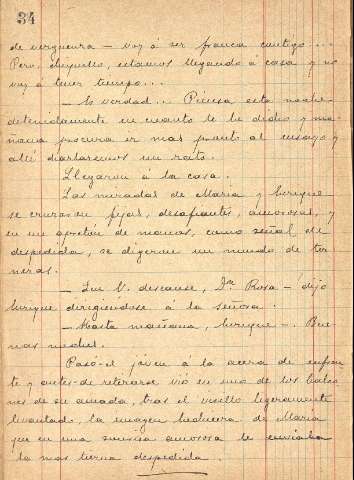 34
de vergüenza — voy á ser franca contigo...
Pero, chiquillo, estamos llegando á casa y no
voy á tener tiempo...
— Es verdad... Piensa esta noche
detenidamente en cuanto te he dicho y ma-
ñana procura ir mas pronto al ensayo y
allí charlaremos un rato.
Llegaron á la casa.
Las miradas de Maria y Enrique
se cruzaron fijas, desafiantes, amorosas, y
en un apretón de manos, como señal de
despedida, se digeron un mundo de ter
nezas.
— Que V. descanse, Dª Rosa — dijo
Enrique dirigiéndose á la señora.
— Hasta mañana, Enrique —. Bue
nas noches.
Pasó el joven á la acera de enfren
te y antes de retirarse vió en uno de los balco
nes de su amada, tras el visillo ligeramente
levantado, la imagen hechicera de Maria
que en una sonrisa amorosa le enviaba
la mas tierna despedida.